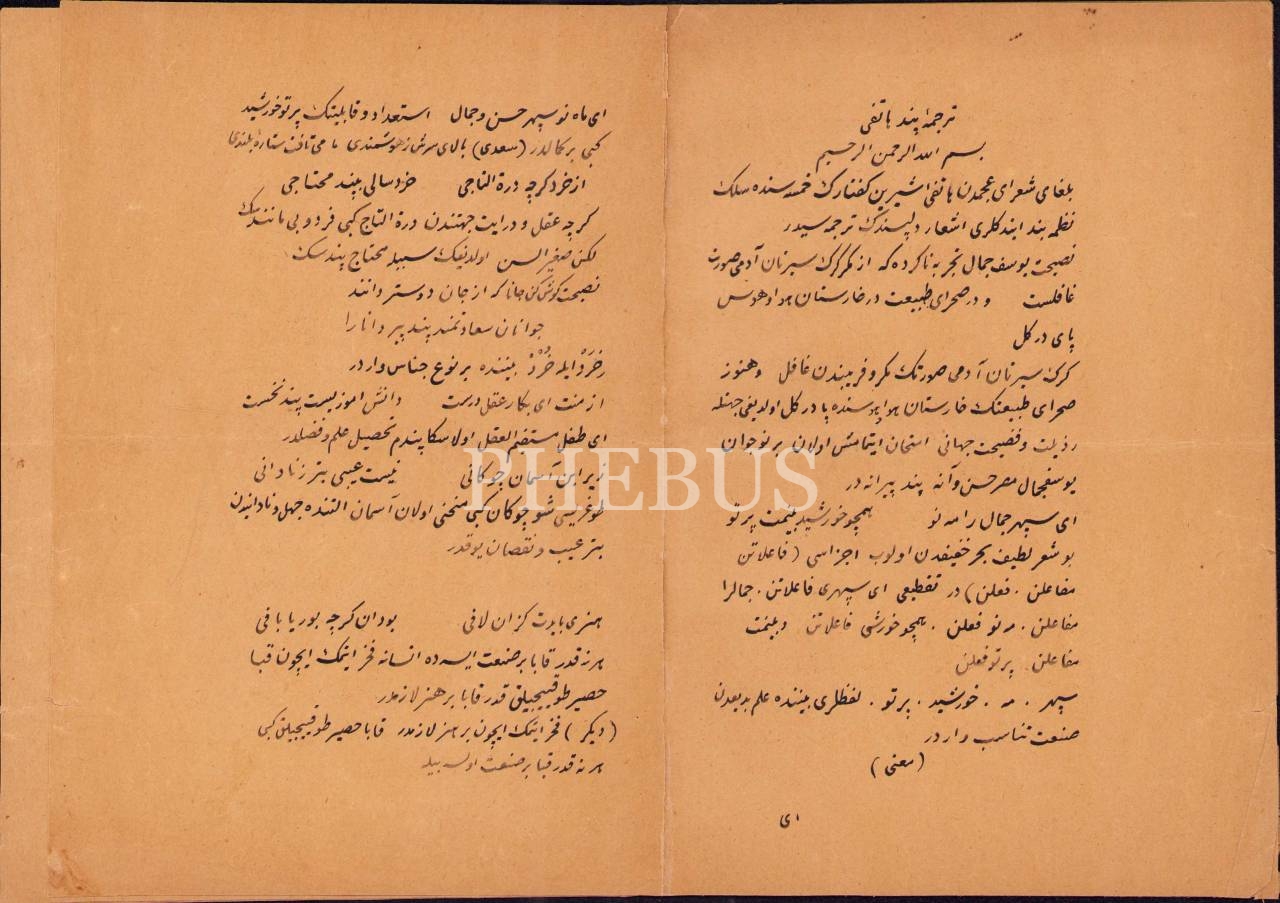 ترجمۀ پند هاتفی
بسم الله الرحمن الرحیم
بلغای شعرای عجمدن هاتفی شیرین کفتارك خمسه سنده سلك
نظمه بند ایتدکلری اشعار دلپسندك ترجمه سیدر
نصیحت یوسف جمال تجربه ناکرده که از مکر کرك سیرتان آدمی صورت
غافلست و در صحرای طبیعت در خارستان هوا و هوس
پای در کل
کرك سیرتان آدمی صورتك مکر و فریبندن غافل و هنوز
صحرای طبیعتك خارستان هوا و هوسنده پا در کل اولدیغی جهتله
رذیلت و فضیحت جهانی امتحان ایتمامش اولان بر نوجوان
یوسفجمال مصر حسن و آنه پند پیرانه در
ای سپهر جمال را مه نو همچو خورشید بلیمت پرتو
بو شعر لطیف بحر خفیفدن اولوب اجزاسی (فاعلاتن
مفاعلن . فعلن) در تقطیعی ای سپهری فاعلاتن . جمالرا
مفاعلن . مه نو فعلن . همچو خورشی فاعلاتن
مفاعلن . پرتو فعلن
سپهر . مه . خورشید . پرتو . لفظلری بیننده علم بدیعدن
صنعت تناسب واردر
(معنی)
ای
ای ماه نو سپهر حسن و جمال استعداد و قابلیتك پرتو خورشید
کبی برکمالدر (سعدی) بالای سرش ز هوشمندی می تافت ستارۀ بلندی
از خرد کرچه درة التاجی خرد سالی بپند محتاجی
کرچه عقل و درایت جهتندن درة التاج کبی فرد و بی مانندسك
لکن صغیر السن اولدیغك سببیله محتاج پندسك
نصیحت کوش کن جانا که از جان دوستر دانند
جوانان سعادتمند پند پیر دانا را
خِرَد ایله خُرْد بیننده بر نوع جناس واردر
از منت ای بکار عقل درست دانش اموزیست پند نخست
ای طفل مستقیم العقل اولا سکا پندم تحصیل علم و فضلدر
زیر این آسمان چوکانی نیست عیبی بتر ز نادانی
طوغریسی شو چوکان کبی منحنی اولان آسمان التنده جهل و نادانیدن
بتر عیب و نقصان یوقدر
هنری بایدت کزان لافی بود ان کرچه بوریا بافی
هر نه قدر قابا بر صنعت ایسه ده انسانه فخر ایتمك ایچون قبا
حصیر طوقییجیلق قدر قابا بر هنر لازمدر
(دیکر) فخر ایتمك ایچون بر هنر لازمدر قابا حصیر طوقییجیلق کبی
هر نه قدر قبا بر صنعت اولسه بیله
PHEBUS